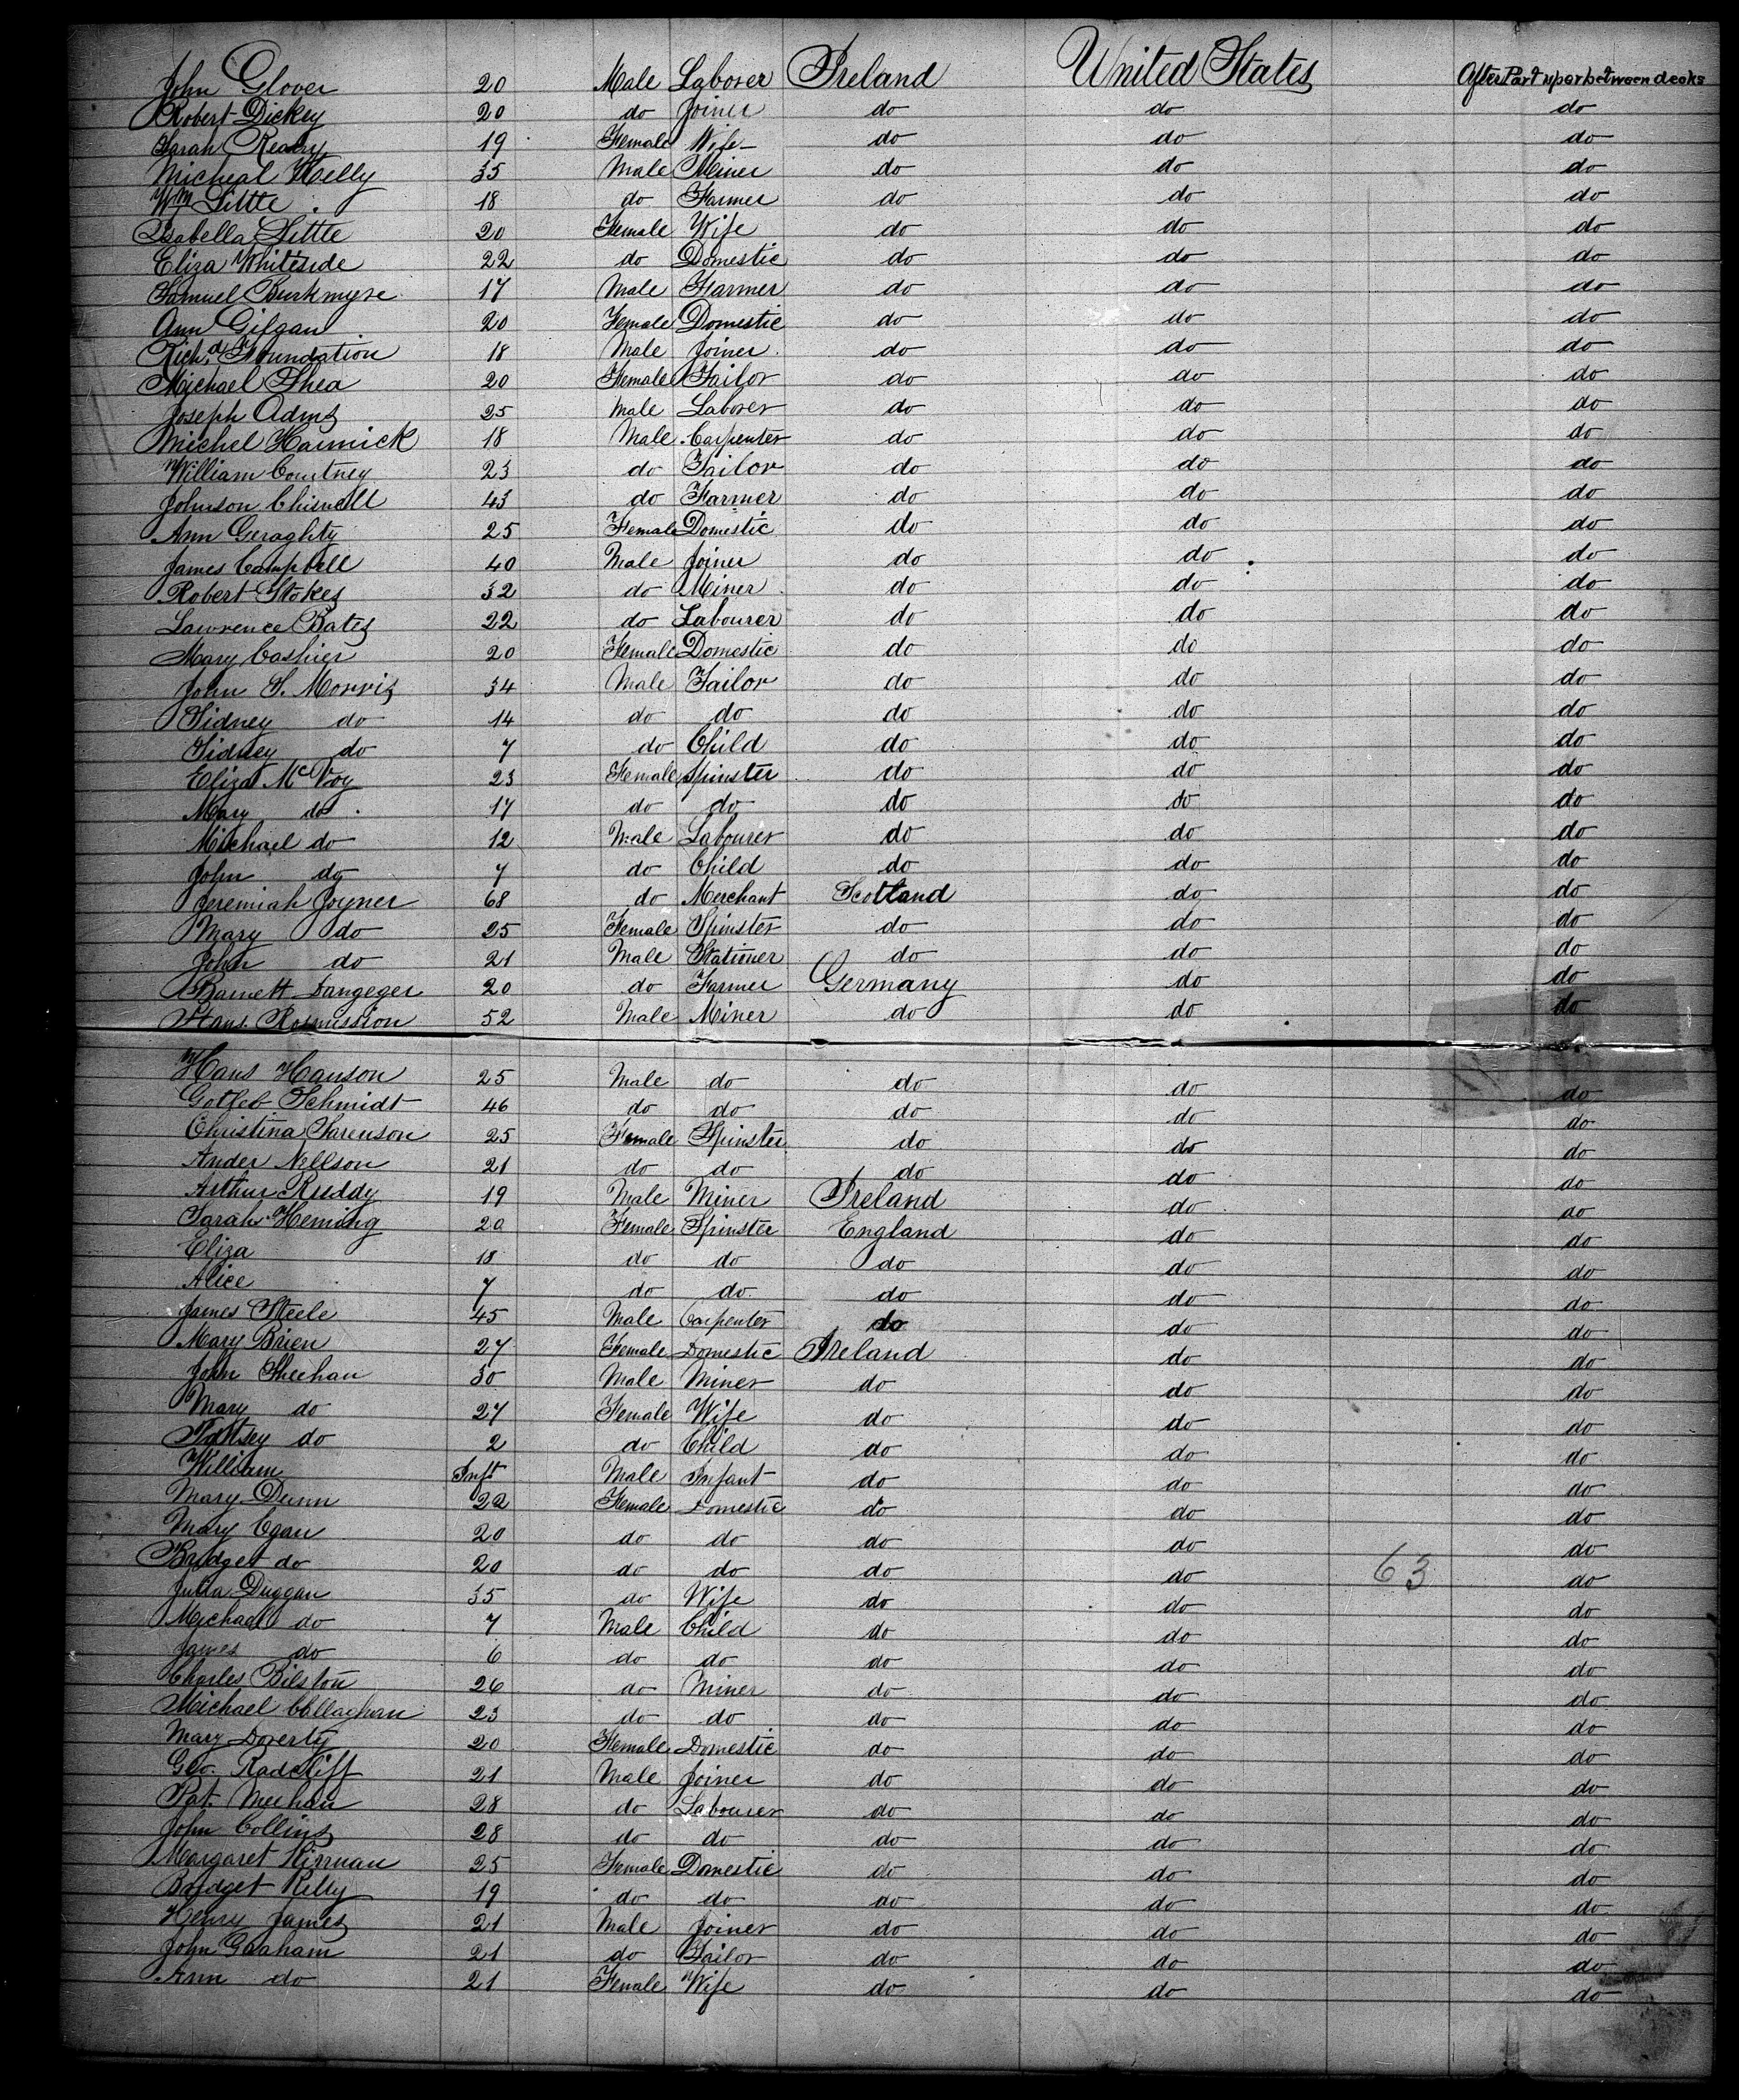 John Glover 20 Male Laborer Ireland United States After Part uper between decks
Robert Dickey 20 do Joiner do do do
Sarah Reary 19 Female Wife do do do
Micheal Kelly 35 Male Miner do do do
Wm Little 18 do Farmer do do do
Isabella Little 20 Female Wife do do do
Eliza Whiteside 22 do Domestic do do do
Samuel Burkmyre 17 Male Farmer do do do
Ann Gilgan 20 Female Domestic do do do
Richd Foundation 18 Male Joiner do do do
Michael Shea 20 Female Tailor do do do
Joseph Adms 25 Male Laborer do do do
Michel Harnick 18 Male Carpenter do do do
William Courtney 23 do Tailor do do do
Johnson Chisnell 43 do Farmer do do do
Ann Geraghty 25 Female Domestic do do do
James Campbell 40 Male Joiner do do do
Robert Stokes 32 do Miner do do do
Lawrence Bates 22 do Labourer do do do
Mary Cashier 20 Female Domestic do do do
John S. Morris 34 Male Tailor do do do
Sidney do 14 do do do do do
Sidney do 7 do Child do do do
Eliza McVoy 23 Female Spinster do do do
Mary do 17 do do do do do
Michael do 12 Male Labourer do do do
John do 7 do Child do do do
Jeremiah Joyner 68 do Merchant Scotland do do
Mary do 25 Female Spinster do do do
John do 21 Male Stationer do do do
Barnett Dangeger 20 do Farmer Germany do do
Hans Rasmission 52 Male Miner do do do
Hans Hanson 25 Male do do do do
Gotleb Schmidt 46 do do do do do
Christina Sorenson 25 Female Spinster do do do
Ander Nellson 21 do do do do do
Arthur Ruddy 19 Male Miner Ireland do do
Sarah Heming 20 Female Spinster England do do
Eliza 18 do do do do do
Alice 7 do do do do do
James Steele 45 Male Carpenter do do do
Mary Brien 27 Female Domestic Ireland do do
John Sheehan 30 Male Miner do do do
Mary do 27 Female Wife do do do
Patsey do 2 do Child do do do
William Inft Male Infant do do do
Mary Dunn 22 Female Domestic do do do
Mary Egan 20 do do do do do
Bridget do 20 do do do do 63 do
Julia Duggan 35 do Wife do do do
Michael do 7 Male Child do do do
James do 6 do do do do do
Charles Bilston 26 do Miner do do do
Michael Callaghan 23 do do do do do
Mary Doverty 20 Female Domestic do do do
Geo. Radcliff 21 Male Joiner do do do
Pat. Meehan 28 do Labourer do do do
John Collins 28 do do do do do
Margaret Kirnuan 25 Female Domestic do do do
Bridget Kelly 19 do do do do do
Henry James 21 Male Joiner do do do
John Graham 21 do Tailor do do do
Ann do 21 Female Wife do do do